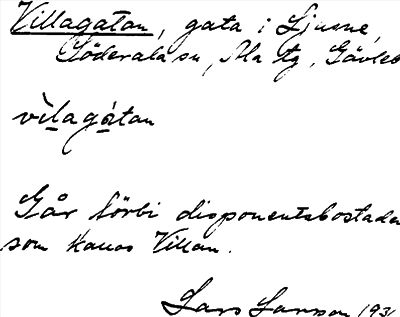 Villagatan, gata i Ljusne,
Söderala sn, Ala tg, Gävleb
vìlagátan
Går förbi disponentsbostaden
som kallas Villan.
Lars Larsson 193